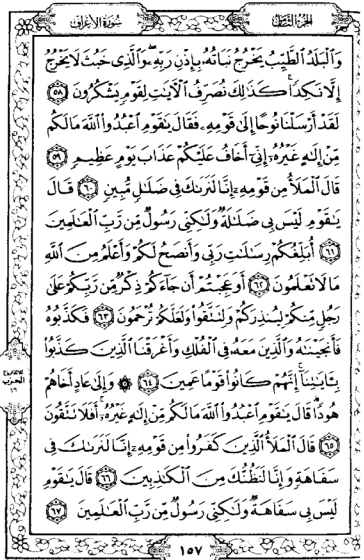 الجزء الثامن
سورة الأعراف
وَالْبَلَدُ الطَّيِّبُ يَخْرُجُ نَبَاتُهُ بِإِذْنِ رَبِّهِ وَالَّذِي خَبُثَ لَا يَخْرُجُ
إِلَّا نَكِدًا كَذَٰلِكَ نُصَرِّفُ الْآيَاتِ لِقَوْمٍ يَشْكُرُونَ ٥٨
لَقَدْ أَرْسَلْنَا نُوحًا إِلَىٰ قَوْمِهِ فَقَالَ يَا قَوْمِ اعْبُدُوا اللَّهَ مَا لَكُم
مِّنْ إِلَٰهٍ غَيْرُهُ إِنِّي أَخَافُ عَلَيْكُمْ عَذَابَ يَوْمٍ عَظِيمٍ ٥٩
قَالَ الْمَلَأُ مِن قَوْمِهِ إِنَّا لَنَرَاكَ فِي ضَلَالٍ مُّبِينٍ ٦٠ قَالَ
يَا قَوْمِ لَيْسَ بِي ضَلَالَةٌ وَلَٰكِنِّي رَسُولٌ مِّن رَّبِّ الْعَالَمِينَ
٦١ أُبَلِّغُكُمْ رِسَالَاتِ رَبِّي وَأَنصَحُ لَكُمْ وَأَعْلَمُ مِنَ اللَّهِ
مَا لَا تَعْلَمُونَ ٦٢ أَوَعَجِبْتُمْ أَن جَاءَكُمْ ذِكْرٌ مِّن رَّبِّكُمْ عَلَىٰ
رَجُلٍ مِّنكُمْ لِيُنذِرَكُمْ وَلِتَتَّقُوا وَلَعَلَّكُمْ تُرْحَمُونَ ٦٣ فَكَذَّبُوهُ
فَأَنجَيْنَاهُ وَالَّذِينَ مَعَهُ فِي الْفُلْكِ وَأَغْرَقْنَا الَّذِينَ كَذَّبُوا
بِآيَاتِنَا إِنَّهُمْ كَانُوا قَوْمًا عَمِينَ ٦٤ ۞ وَإِلَىٰ عَادٍ أَخَاهُمْ
هُودًا قَالَ يَا قَوْمِ اعْبُدُوا اللَّهَ مَا لَكُم مِّنْ إِلَٰهٍ غَيْرُهُ أَفَلَا تَتَّقُونَ
٦٥ قَالَ الْمَلَأُ الَّذِينَ كَفَرُوا مِن قَوْمِهِ إِنَّا لَنَرَاكَ فِي
سَفَاهَةٍ وَإِنَّا لَنَظُنُّكَ مِنَ الْكَاذِبِينَ ٦٦ قَالَ يَا قَوْمِ
لَيْسَ بِي سَفَاهَةٌ وَلَٰكِنِّي رَسُولٌ مِّن رَّبِّ الْعَالَمِينَ ٦٧
الحزب
١٥٧